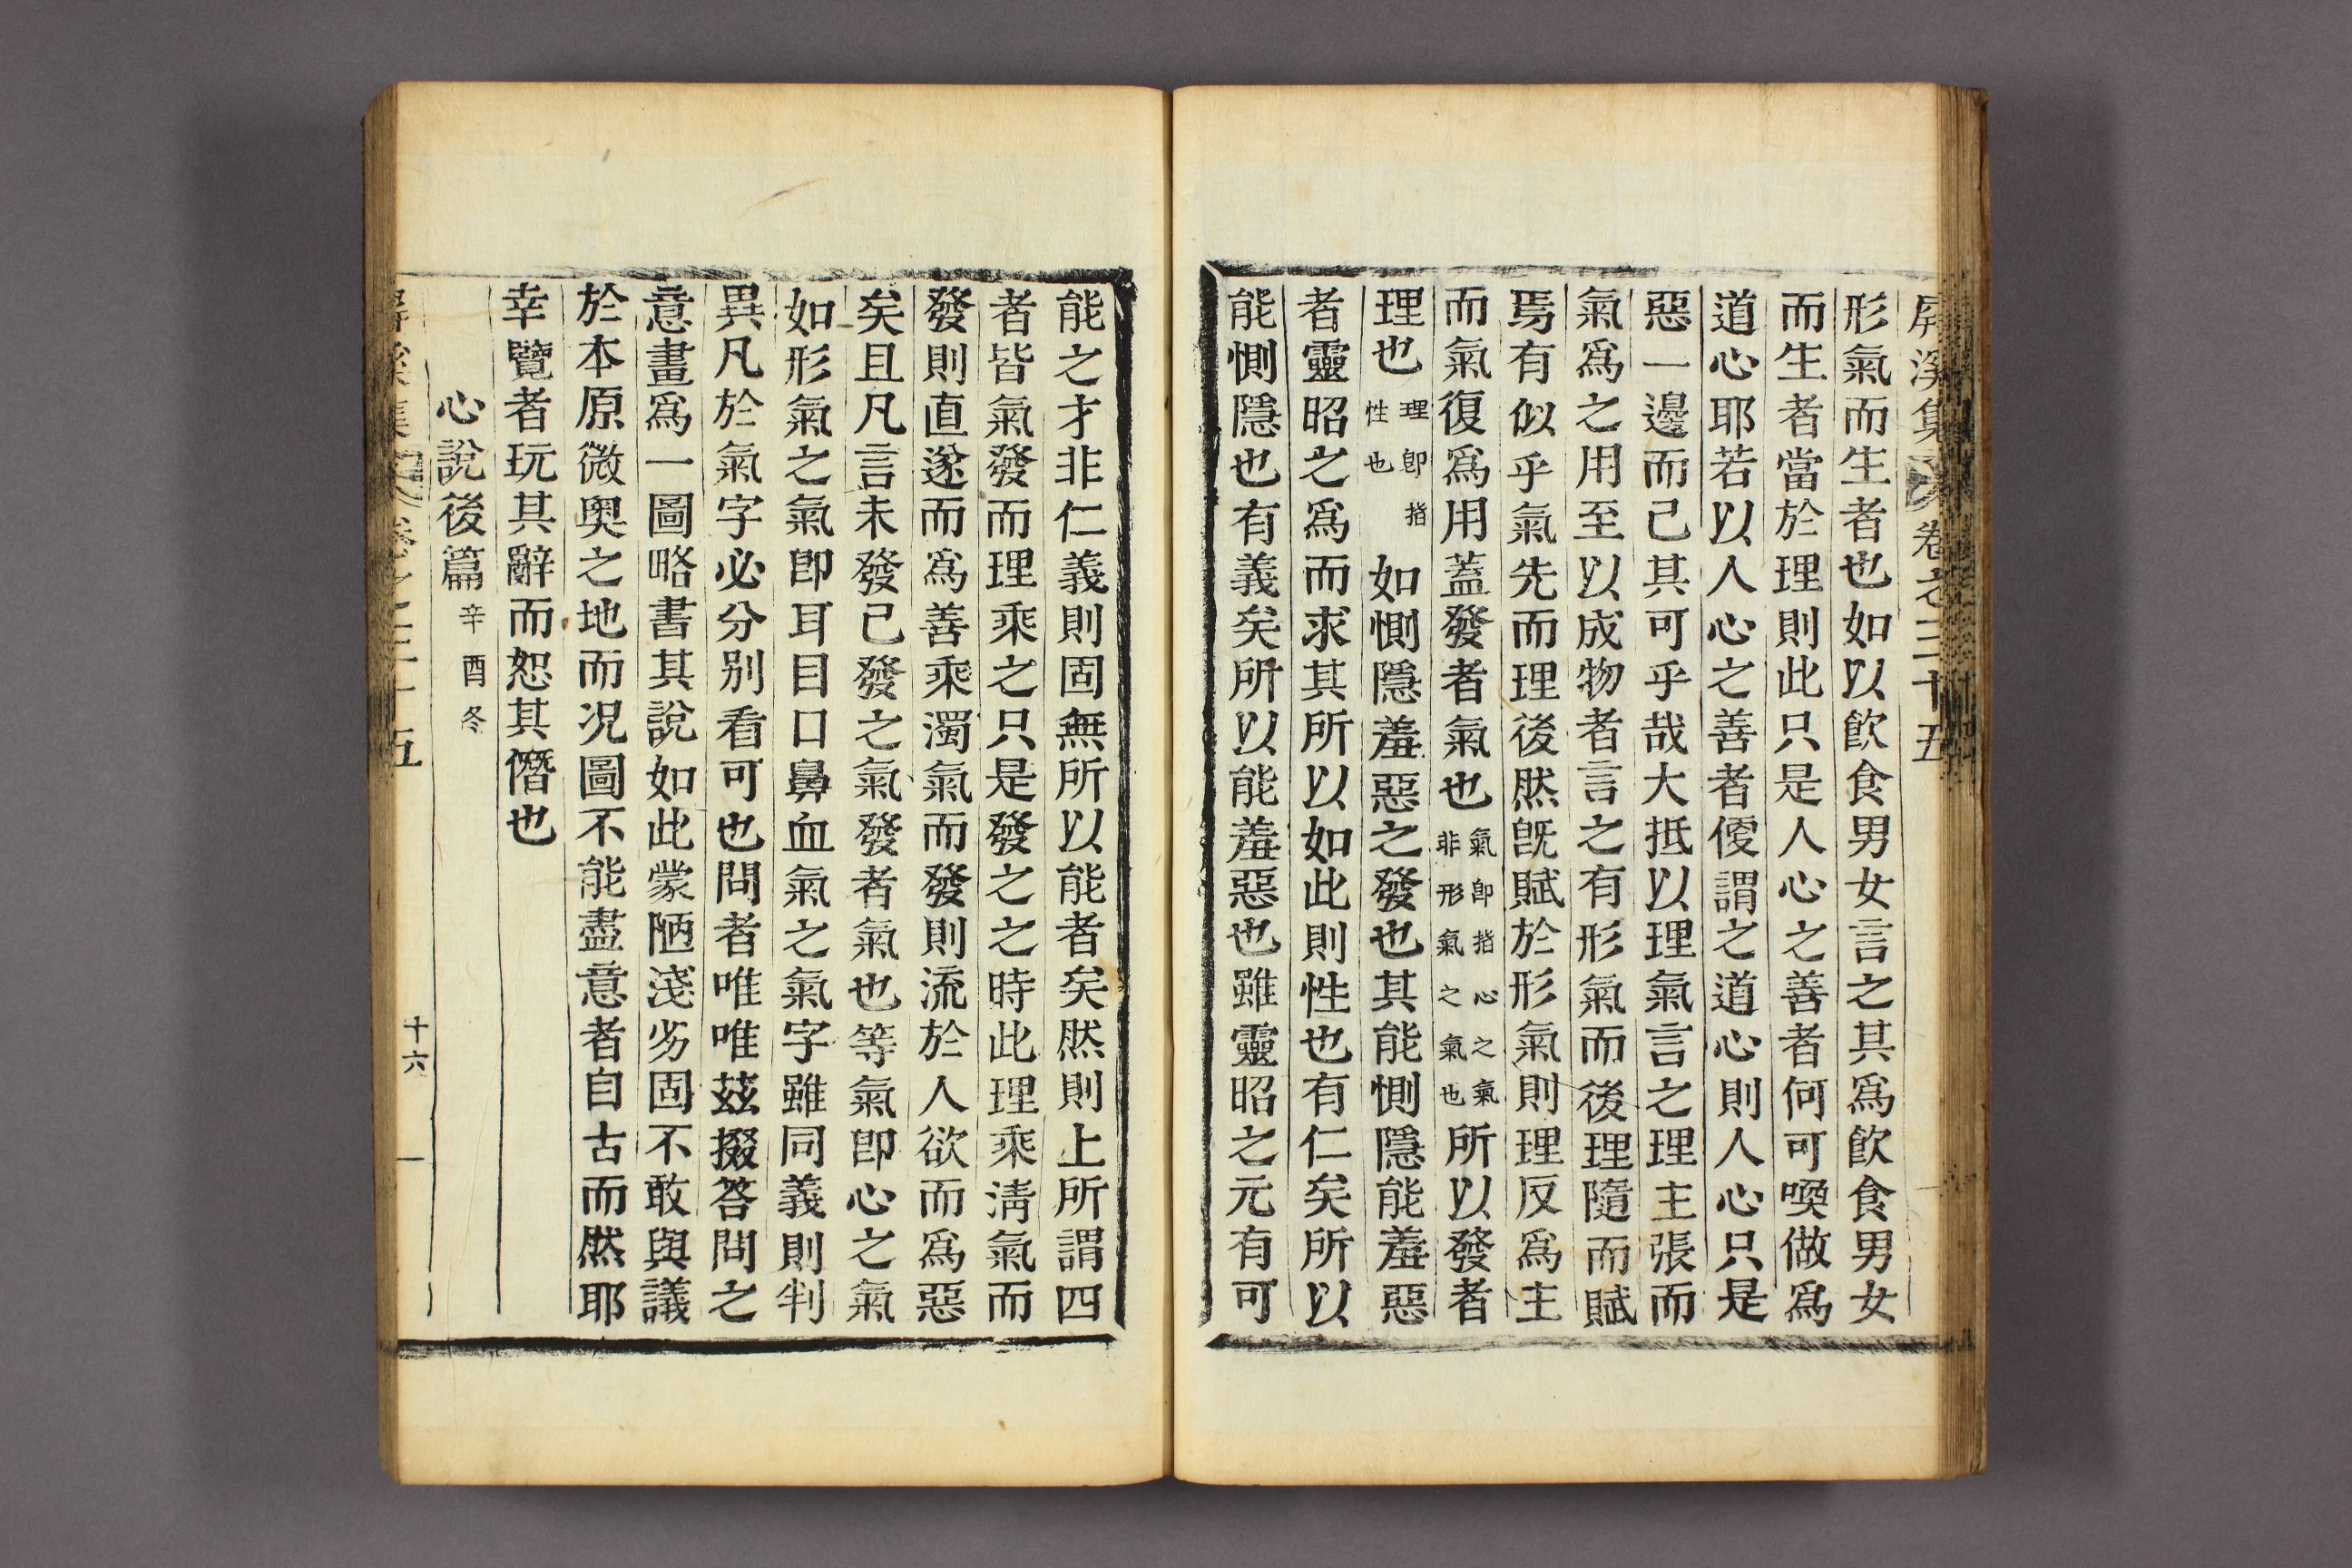 屛溪集 卷之三十五
形氣而生者也如以飮食男女言之其爲飮食男女
而生者當於理則此只是人心之善者何可喚做爲
道心耶若以人心之善者便謂之道心則人心只是
惡一邊而已其可乎哉大抵以理氣言之理主張而
氣爲之用至以成物者言之有形氣而後理隨而賦
焉有似乎氣先而理後然旣賦於形氣則理反爲主
而氣復爲用蓋發者氣也氣卽指心之氣非形氣之氣也所以發者
理也理卽指性也如惻隱羞惡之發也其能惻隱能羞惡
者靈昭之爲而求其所以如此則性也有仁矣所以
能惻隱也有義矣所以能羞惡也雖靈昭之元有可
能之才非仁義則固無所以能者矣然則上所謂四
者皆氣發而理乘之只是發之之時此理乘淸氣而
發則直遂而爲善乘濁氣而發則流於人欲而爲惡
矣且凡言未發已發之氣發者氣也等氣卽心之氣
如形氣之氣卽耳目口鼻血氣之氣字雖同義則判
異凡於氣字必分別看可也問者唯唯玆掇答問之
意畫爲一圖略書其說如此蒙陋淺劣固不敢與議
於本原微奧之地而况圖不能盡意者自古而然耶
幸覽者玩其辭而恕其僭也
心說後篇辛酉冬
十六